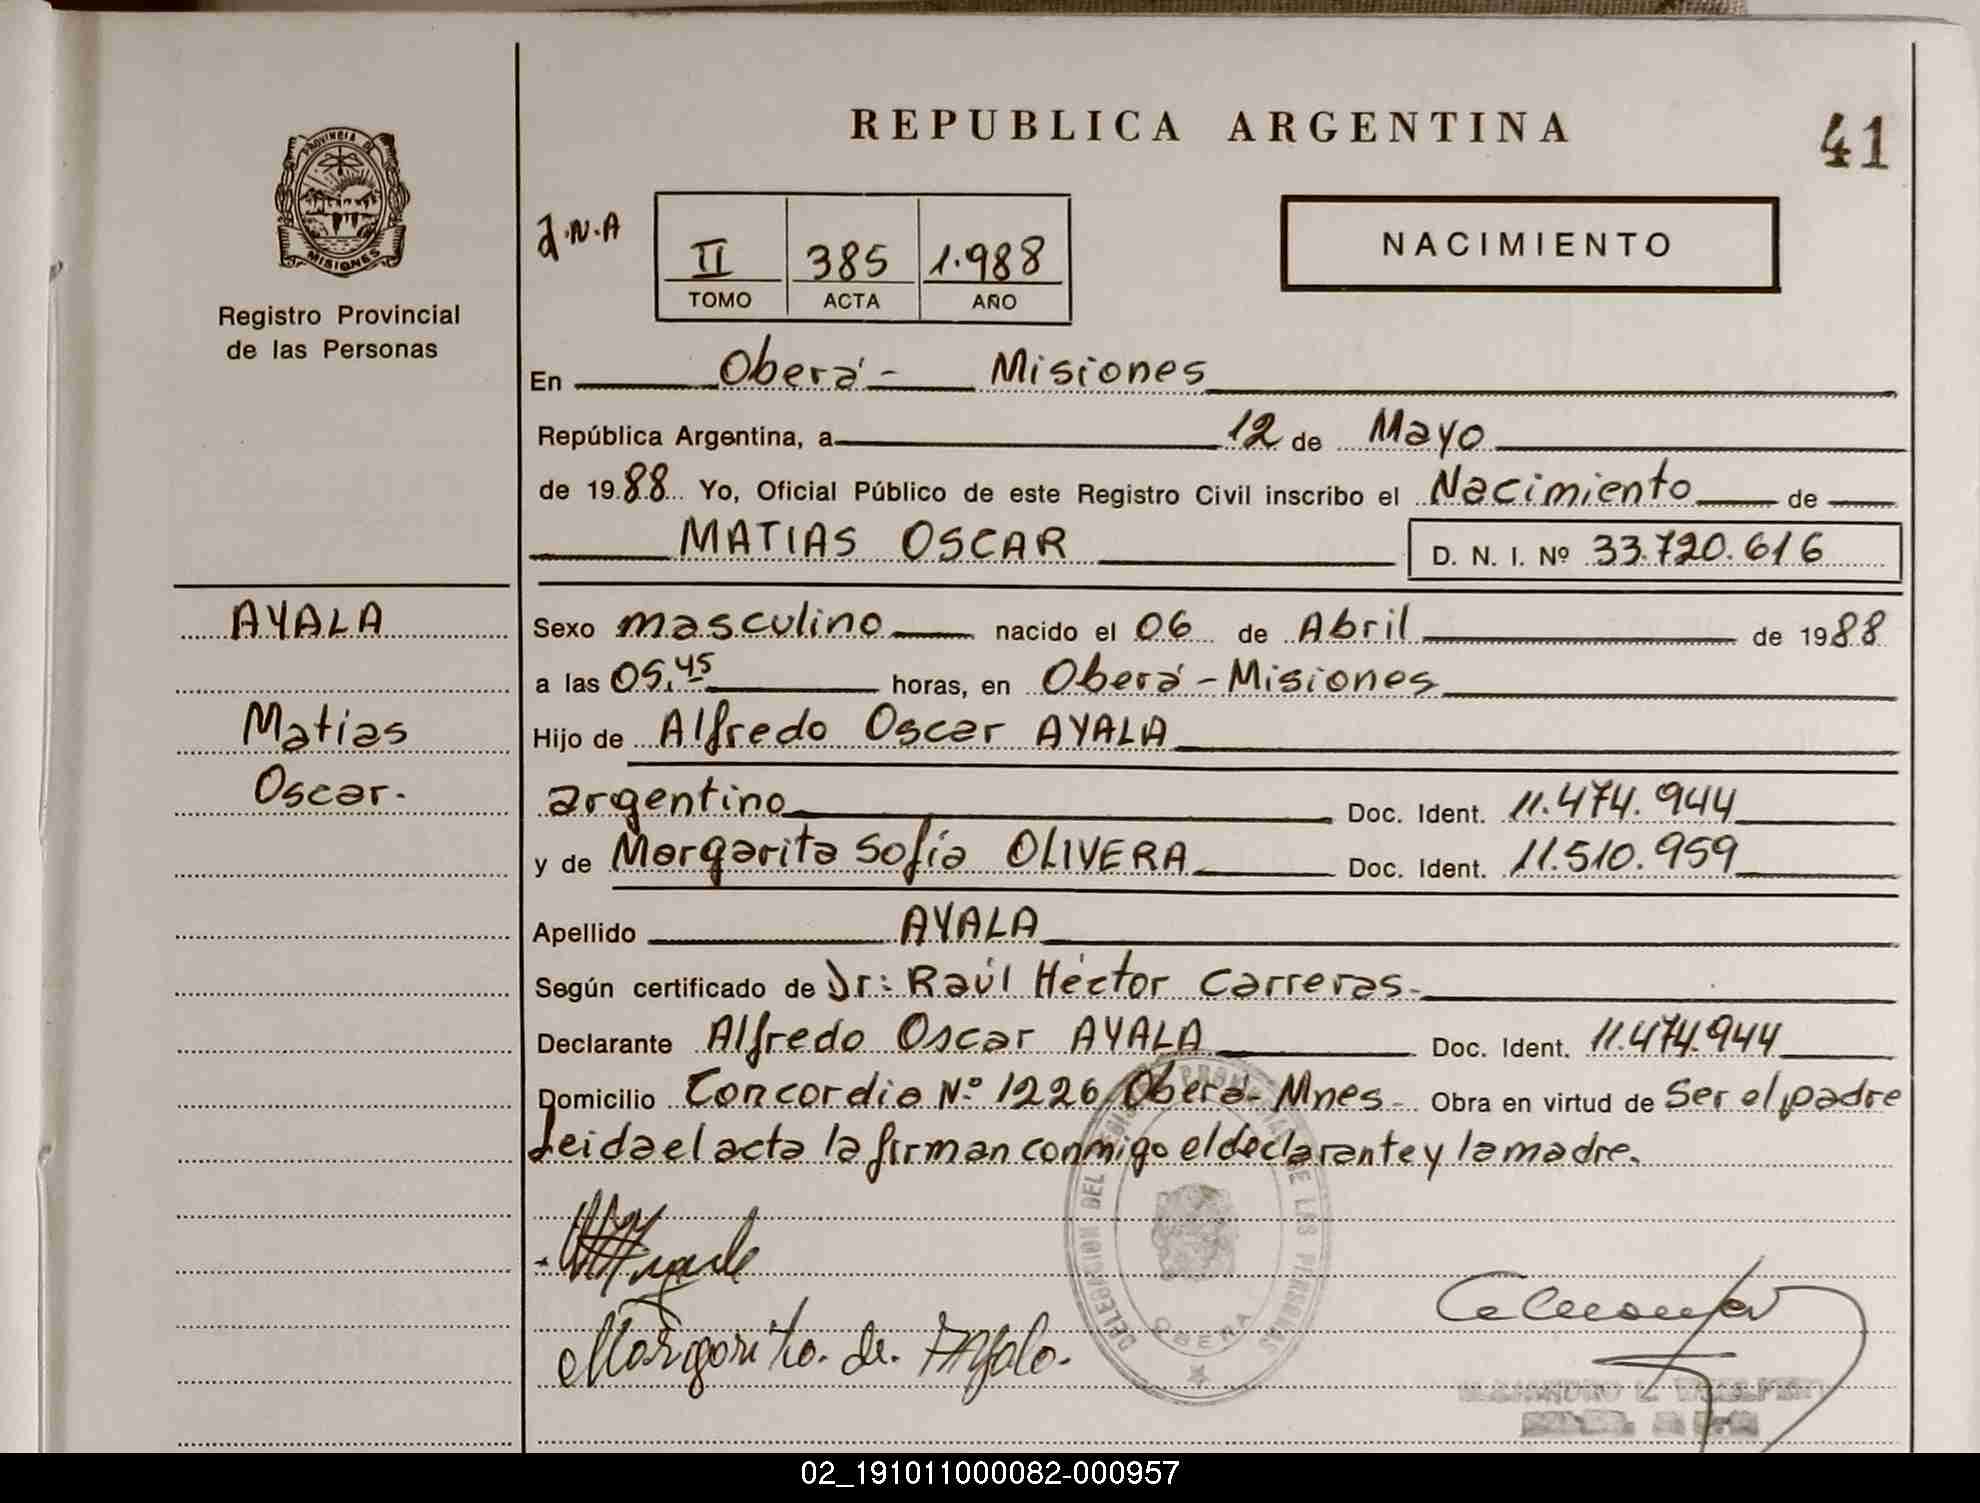 REPUBLICA ARGENTINA
41
PROVINCIA DE
MISIONES
Registro Provincial
de las Personas
J.N.A
II 385 1.988
TOMO ACTA AÑO
NACIMIENTO
En Oberá - Misiones
República Argentina, a 12 de Mayo
de 1988 Yo, Oficial Público de este Registro Civil inscribo el Nacimiento de
MATIAS OSCAR D. N. I. Nº 33.720.616
AYALA
Matias
Oscar.
Sexo masculino nacido el 06 de Abril de 1988
a las 05,45 horas, en Oberá - Misiones
Hijo de Alfredo Oscar AYALA
argentino Doc. Ident. 11.474.944
y de Margarita Sofía OLIVERA Doc. Ident. 11.510.959
Apellido AYALA
Según certificado de Dr: Raúl Héctor Carreras.
Declarante Alfredo Oscar AYALA Doc. Ident. 11.474.944
Domicilio Concordia Nº 1226, Oberá - Mnes - Obra en virtud de Ser el padre
Leida el acta la firman conmigo el declarante y la madre.
Margarita. de. Ayala.
DELEGACION DEL REGISTRO PROVINCIAL DE LAS PERSONAS
OBERA
02_191011000082-000957